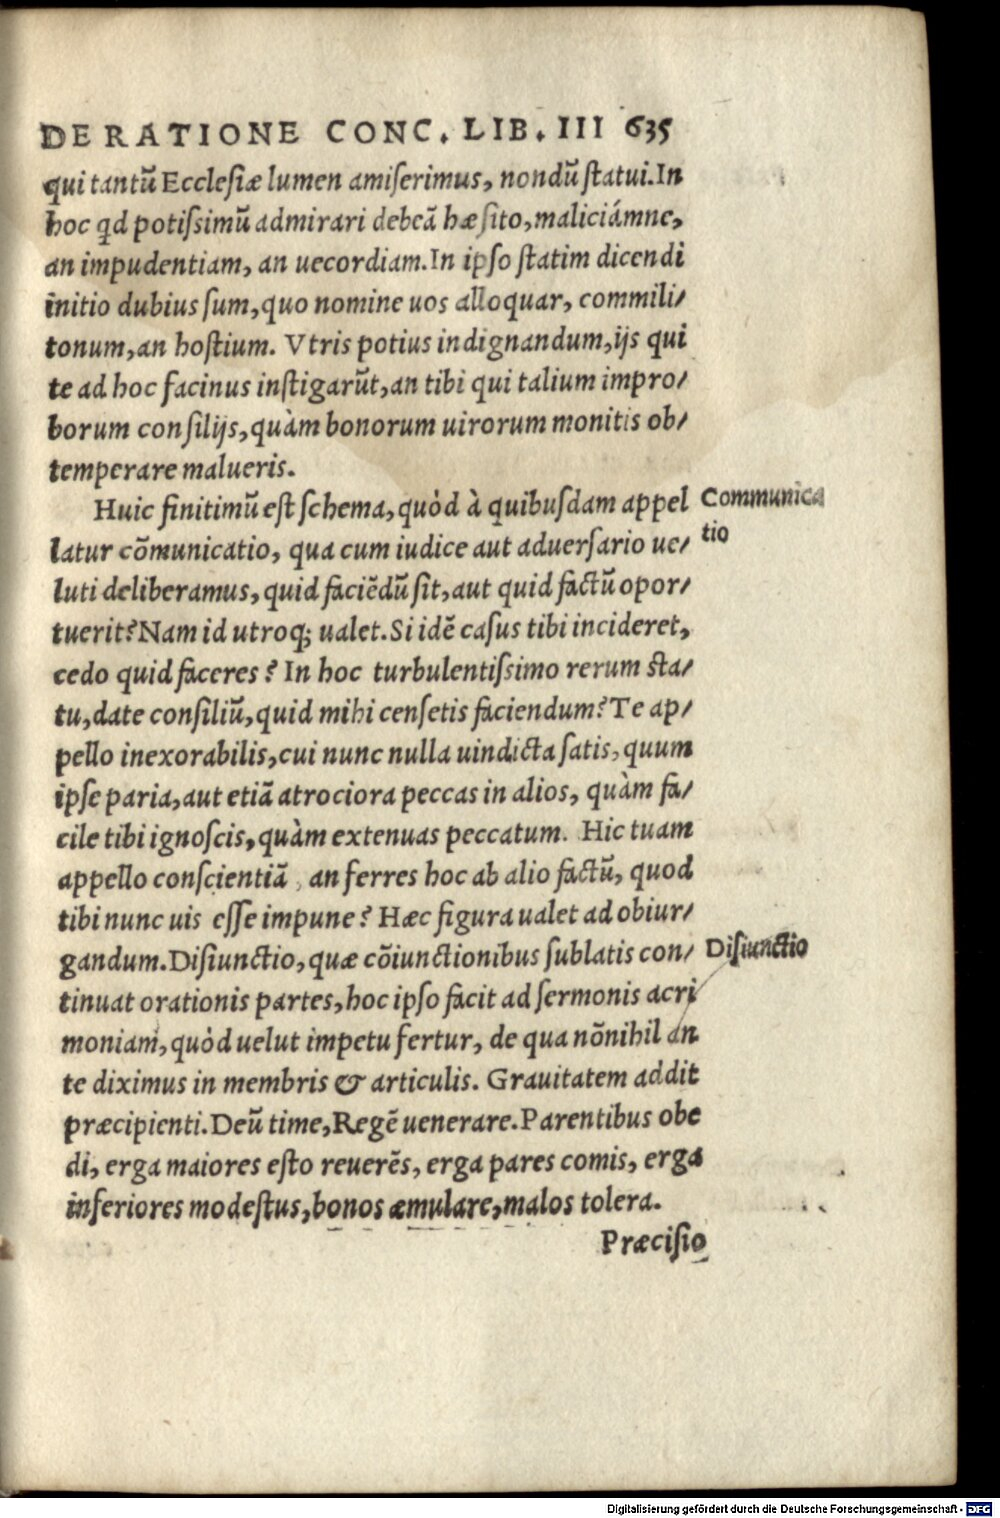 DE RATIONE CONC. LIB. III 635
qui tantũ Ecclesiæ lumen amiserimus, nondũ statui. In
hoc qd potissimũ admirari debeã hæsito, maliciámne,
an impudentiam, an uecordiam. In ipso statim dicendi
initio dubius sum, quo nomine uos alloquar, commili/
tonum, an hostium. Vtris potius indignandum, ijs qui
te ad hoc facinus instigarũt, an tibi qui talium impro/
borum consilijs, quàm bonorum uirorum monitis ob/
temperare malueris.
Huic finitimũ est schema, quòd à quibusdam appel
Communica
latur cõmunicatio, qua cum iudice aut aduersario ue/
tio
luti deliberamus, quid faciẽdũ sit, aut quid factũ opor/
tuerit? Nam id utroq; ualet. Si idẽ casus tibi incideret,
cedo quid faceres? In hoc turbulentissimo rerum sta/
tu, date consiliũ, quid mihi censetis faciendum? Te ap/
pello inexorabilis, cui nunc nulla uindicta satis, quum
ipse paria, aut etiã atrociora peccas in alios, quàm fa/
cile tibi ignoscis, quàm extenuas peccatum. Hic tuam
appello conscientiã, an ferres hoc ab alio factũ, quod
tibi nunc uis esse impune? Hæc figura ualet ad obiur/
gandum. Disiunctio, quæ cõiunctionibus sublatis con/
Disiunctio
tinuat orationis partes, hoc ipso facit ad sermonis acri
moniam, quòd uelut impetu fertur, de qua nõnihil an
te diximus in membris & articulis. Grauitatem addit
præcipienti. Deũ time, Regẽ uenerare. Parentibus obe
di, erga maiores esto reuerẽs, erga pares comis, erga
inferiores modestus, bonos æmulare, malos tolera.
Præcisio
Digitalisierung gefördert durch die Deutsche Forschungsgemeinschaft - DFG